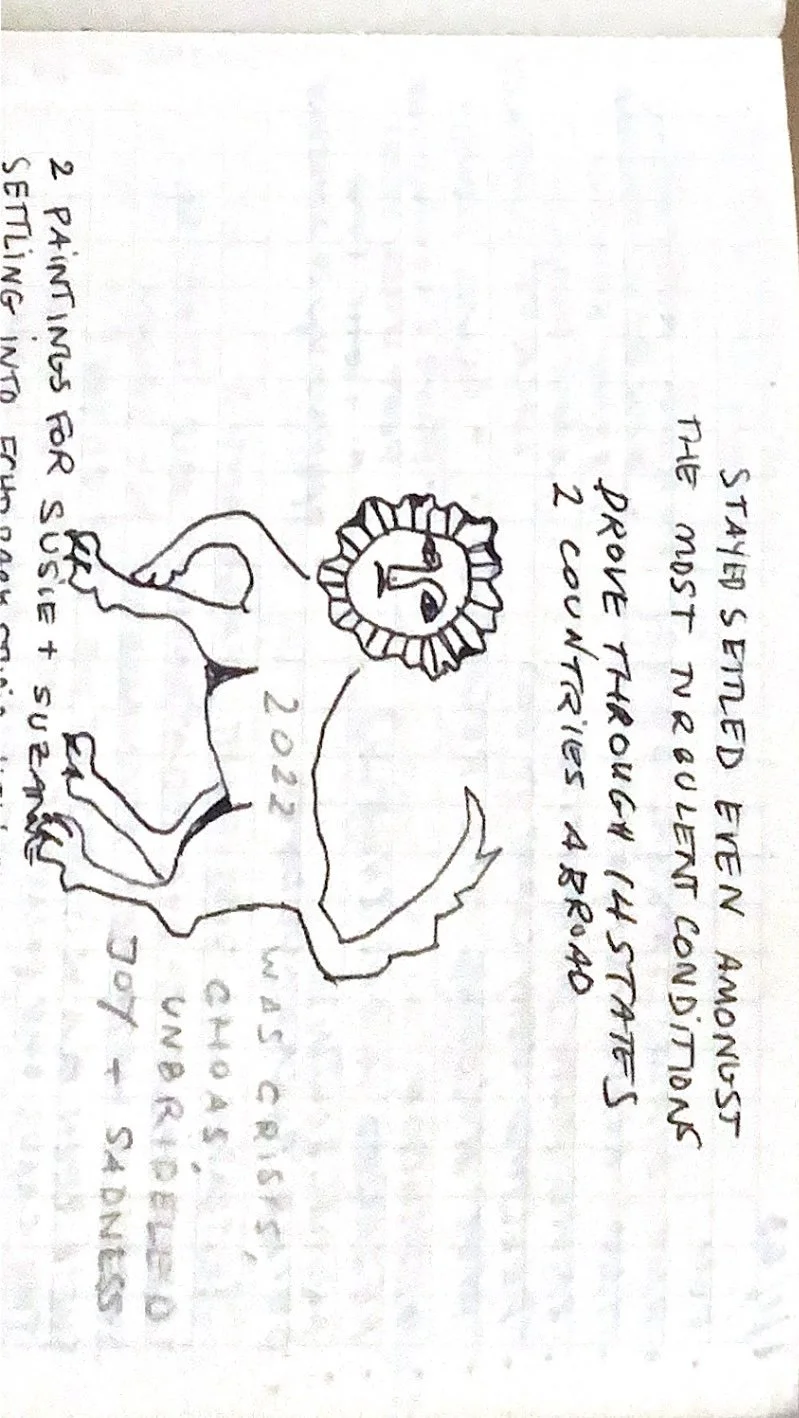 STAYED SETTLED EVEN AMONGST
THE MOST TURBULENT CONDITIONS
DROVE THROUGH 14 STATES
2 COUNTRIES ABROAD
2022
WAS CRISIS,
CHOAS,
UNBRIDELED
JOY + SADNESS
2 PAINTINGS FOR SUSIE + SUZANNE
SETTLING INTO